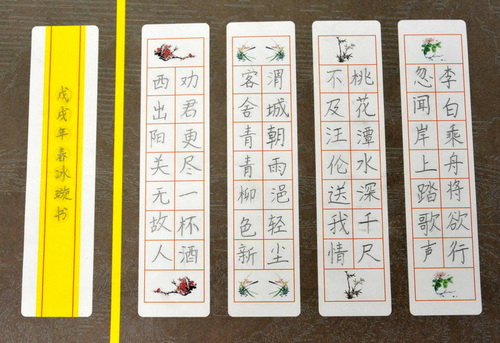 李白乘舟将欲行
忽闻岸上踏歌声
桃花潭水深千尺
不及汪伦送我情
渭城朝雨浥轻尘
客舍青青柳色新
劝君更尽一杯酒
西出阳关无故人
戊戌年春冰璇书